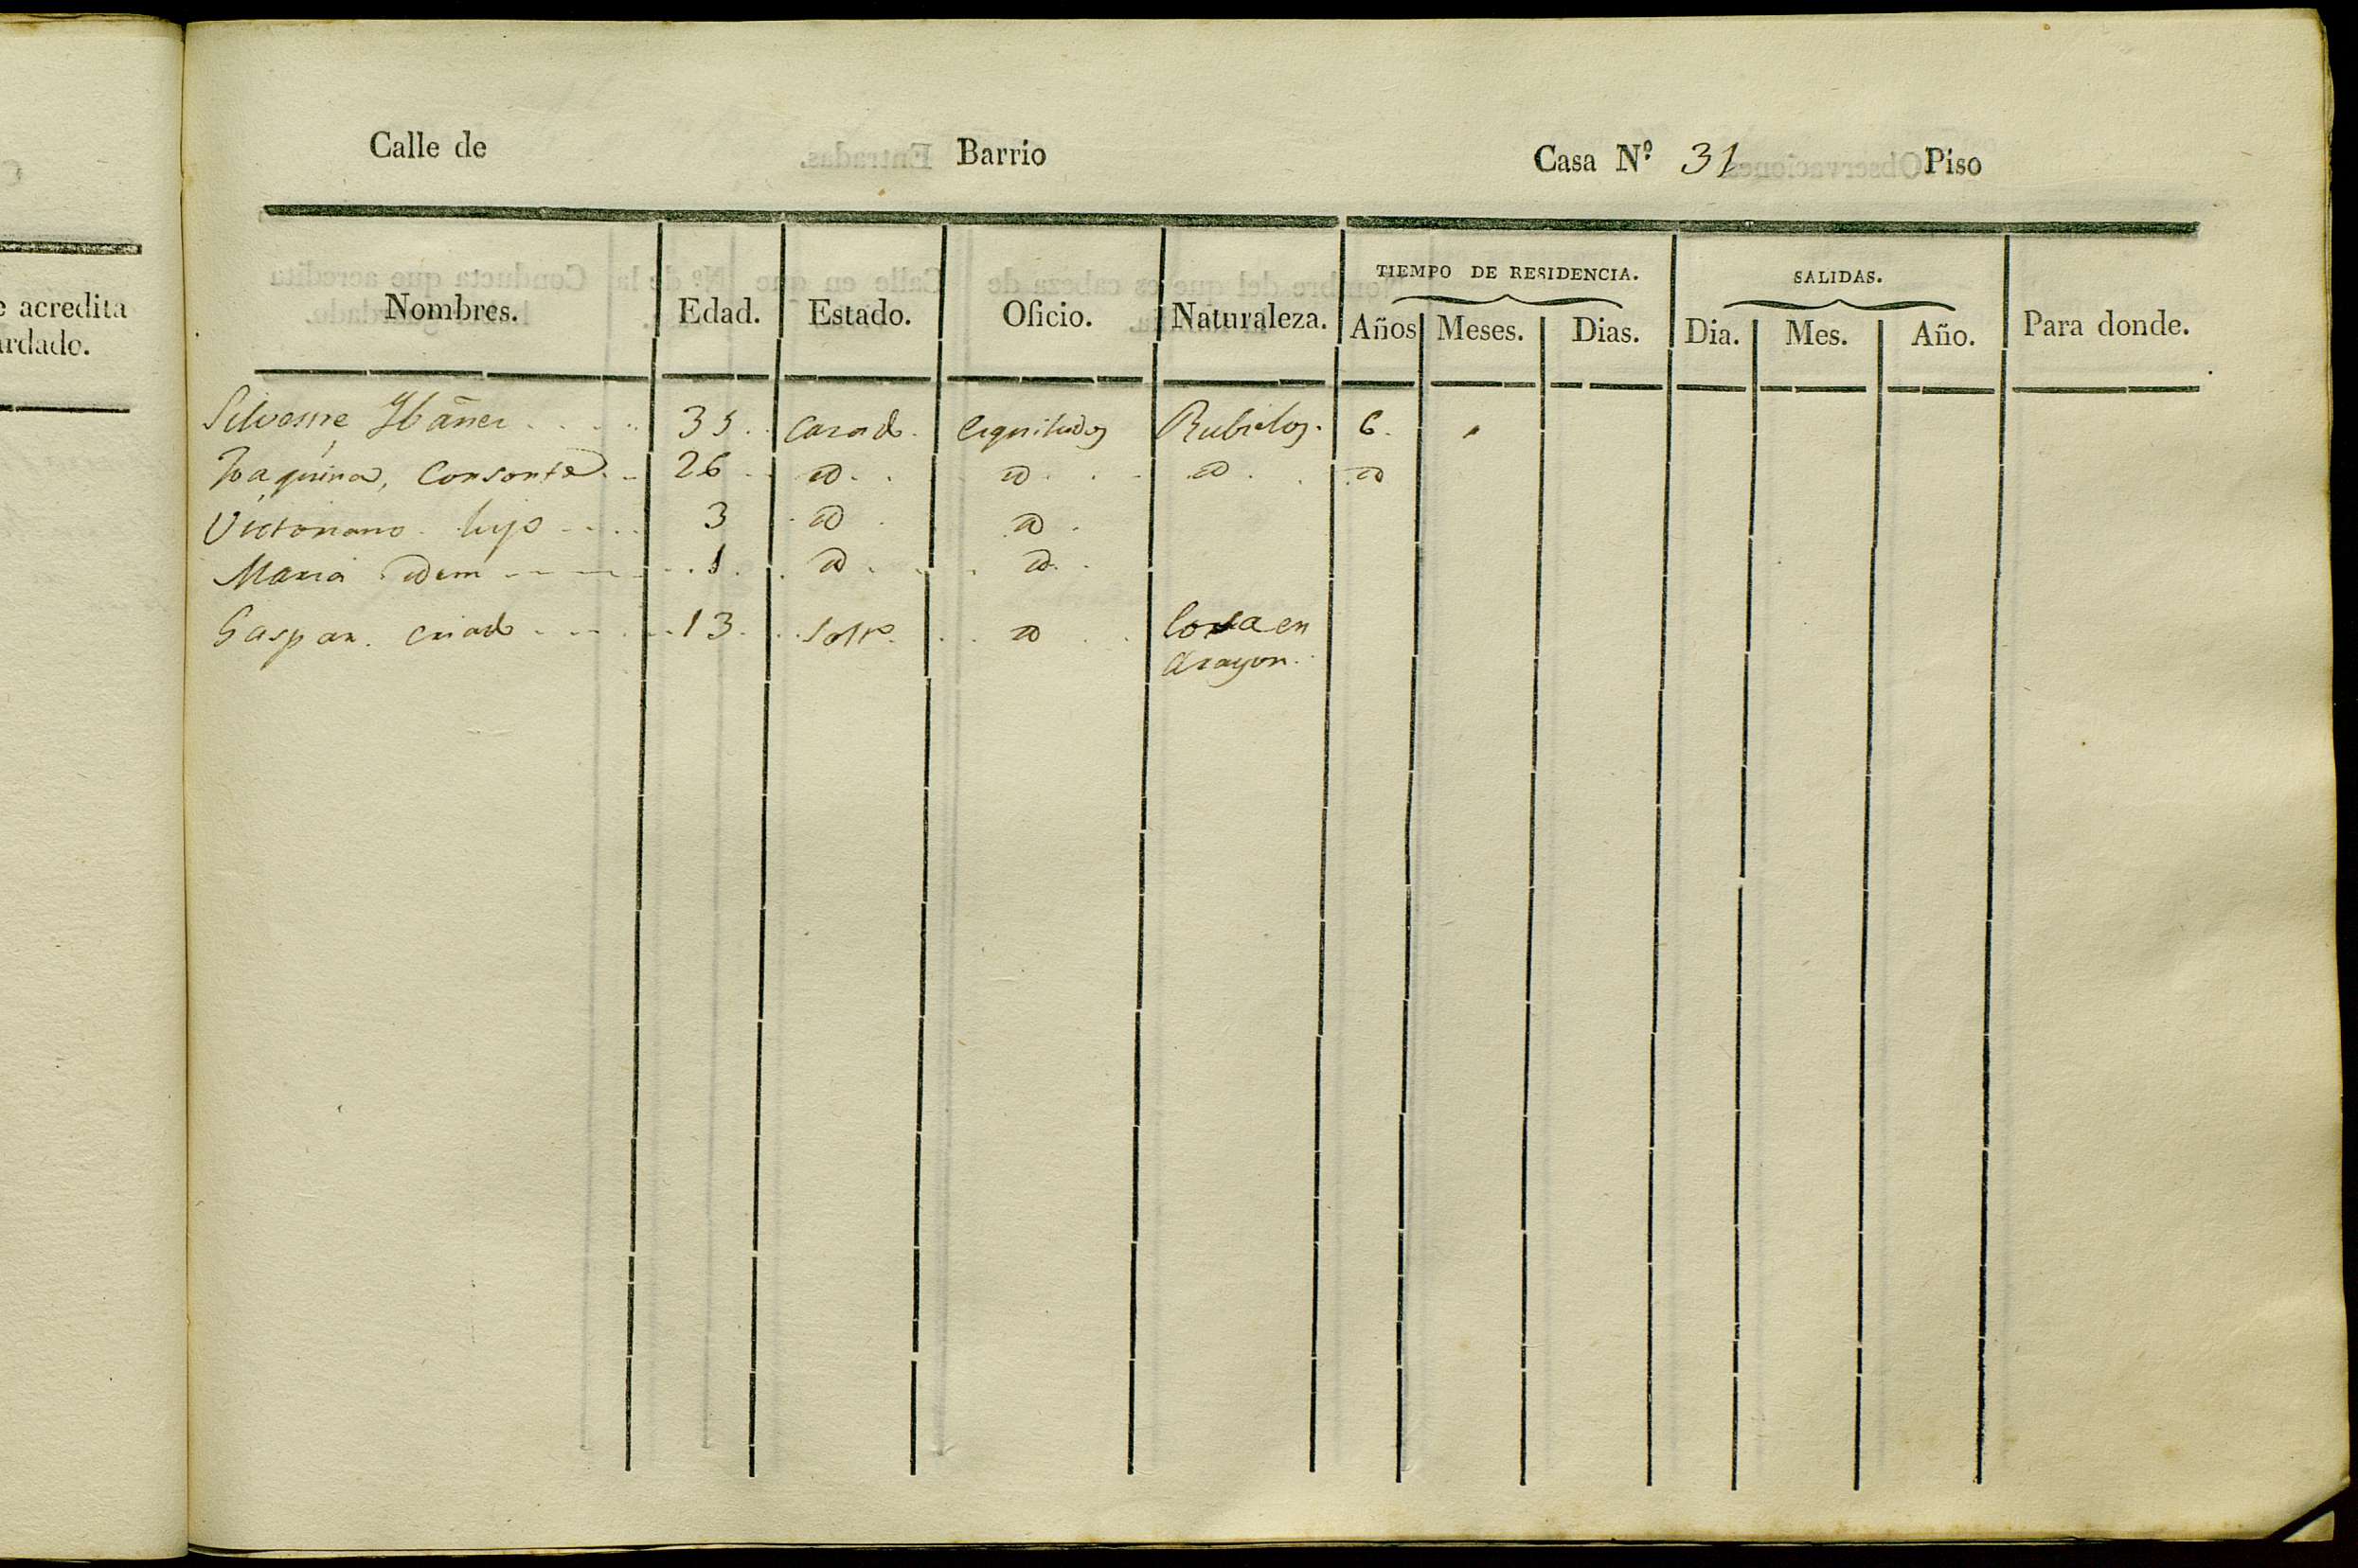 Calle de Barrio Casa Nº 31 Piso
e acredita
ardado.
TIEMPO DE RESIDENCIA. SALIDAS.
Nombres. Edad. Estado. Oficio. Naturaleza. Años Meses. Dias. Dia. Mes. Año. Para donde.
Silvestre Ybañez 35 Casado Rubielos 6
Joaquina, Consorte 26 id id id id
Victoriano hijo 3 id id
Maria idem 1 id id
Gaspar criado 13 solt.º id en
Aragon.